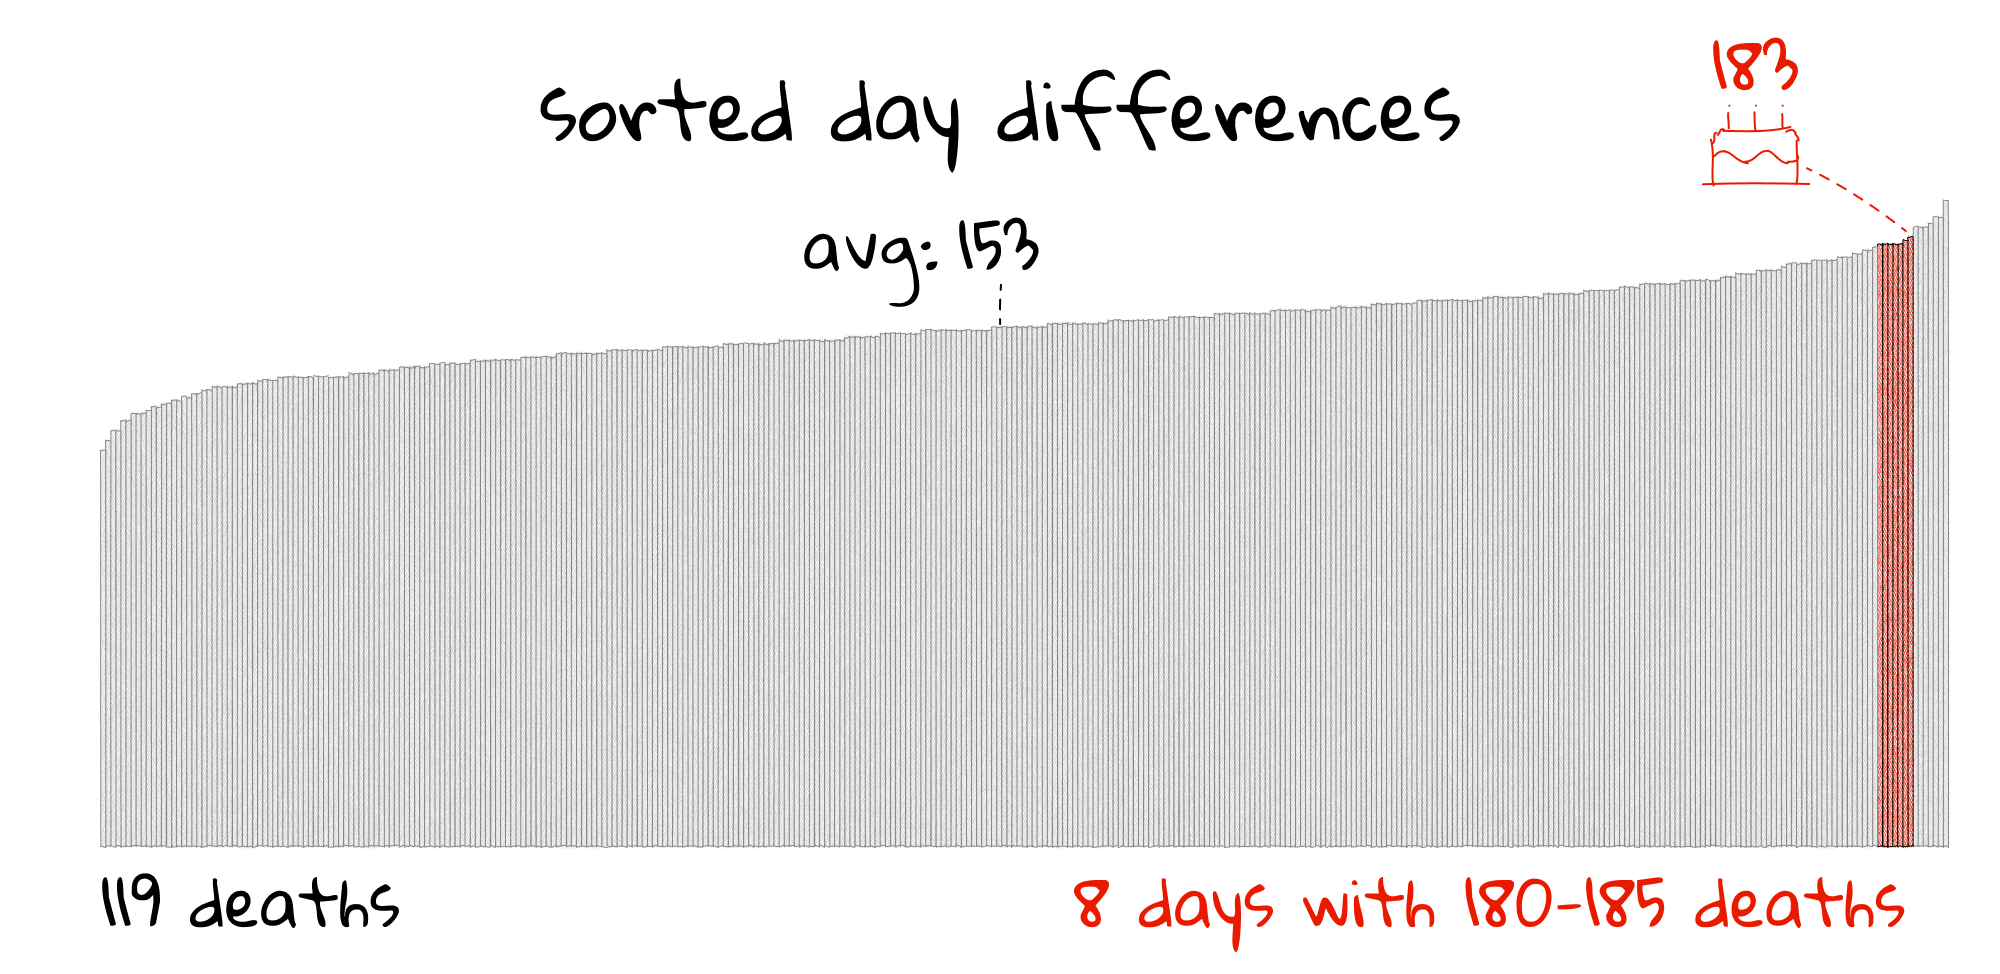 183
sorted day differences
avg: 153
119 deaths
8 days with 180-185 deaths